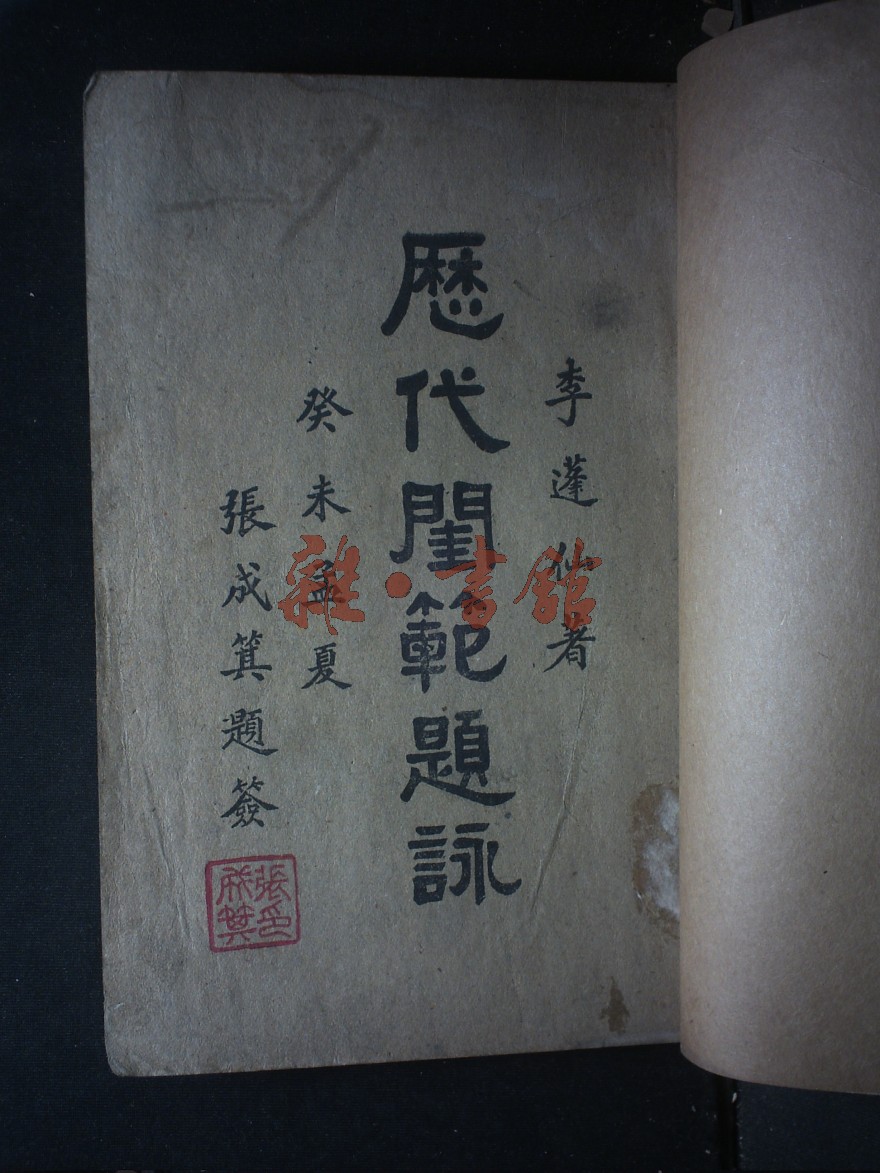 李蓬仙著
歷代閨範題詠
癸未孟夏
張成箕題簽
張成箕印
雜·書館